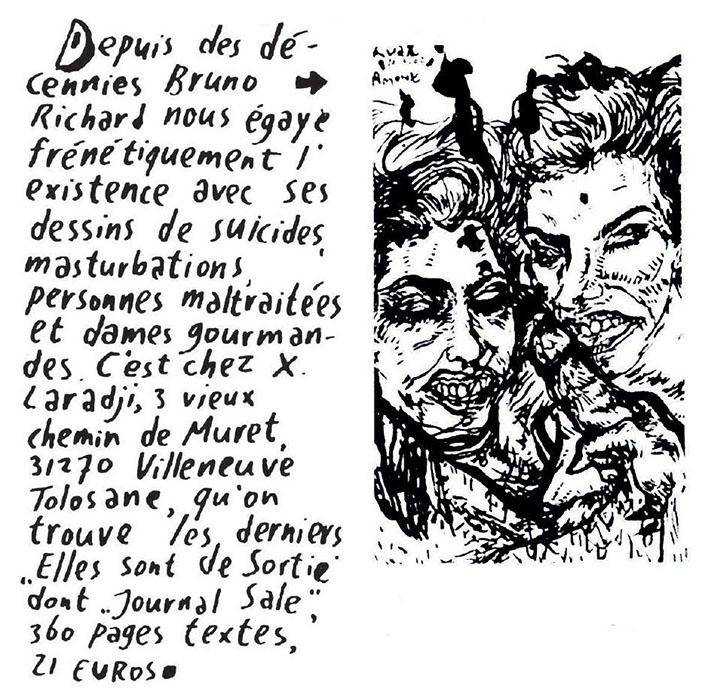 Depuis des dé-
cennies Bruno →
Richard nous égaye
frénétiquement l'
existence avec ses
dessins de suicides,
masturbations,
personnes maltraitées
et dames gourman-
des. C'est chez X.
Laradji, 3 vieux
chemin de Muret,
31270 Villeneuve
Tolosane, qu'on
trouve les derniers
„Elles sont de Sortie"
dont „Journal Sale",
360 pages textes,
21 EUROS.